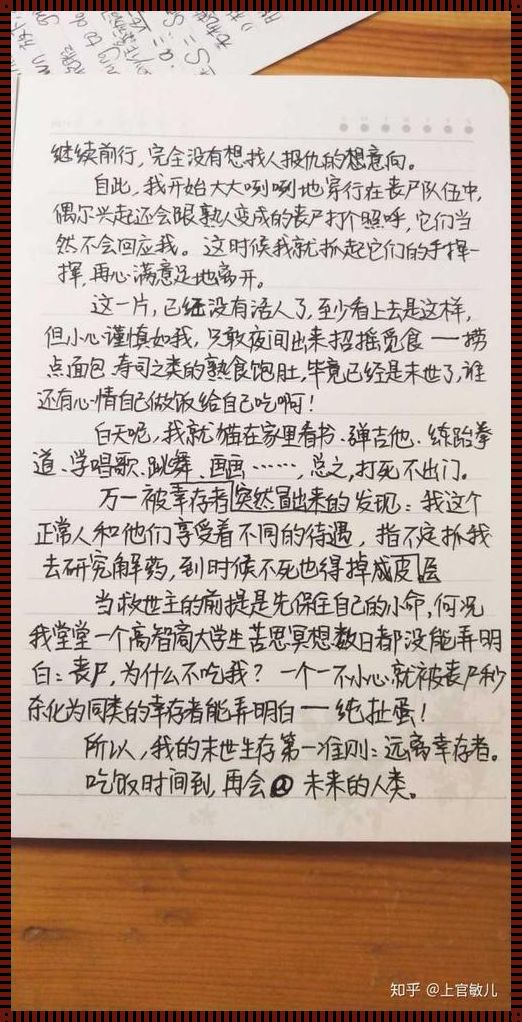 继续前行，完全没有想找人报仇的想意向。
自此，我开始大大咧咧地穿行在丧尸队伍中，
偶尔兴起还会跟熟人变成的丧尸打个照呼，它们当
然不会回应我。这时候我就抓起它们的手挥一
挥，再心满意足地离开。
这一片，已经没有活人了，至少看上去是这样，
但小心谨慎如我，只敢夜间出来招摇觅食——捞
点面包寿司之类的熟食饱肚，毕竟已经是末世了，谁
还有心情自己做饭给自己吃啊！
白天呢，我就猫在家里看书、弹吉他、练跆拳
道、学唱歌、跳舞、画画……，总之，打死不出门。
万一被幸存者突然冒出来的发现：我这个
正常人和他们享受着不同的待遇，指不定抓我
去研究解药，到时候不死也得掉成皮层
当救世主的前提是先保住自己的小命，何况
我堂堂一个高智商大学生苦思冥想数日都没能弄明
白：丧尸，为什么不吃我？一个一不小心就被丧尸秒
杀化为同类的幸存者能弄明白——纯扯蛋！
所以，我的末世生存第一准则：远离幸存者。
吃饭时间到，再会 未来的人类。
知乎 @上官敏儿